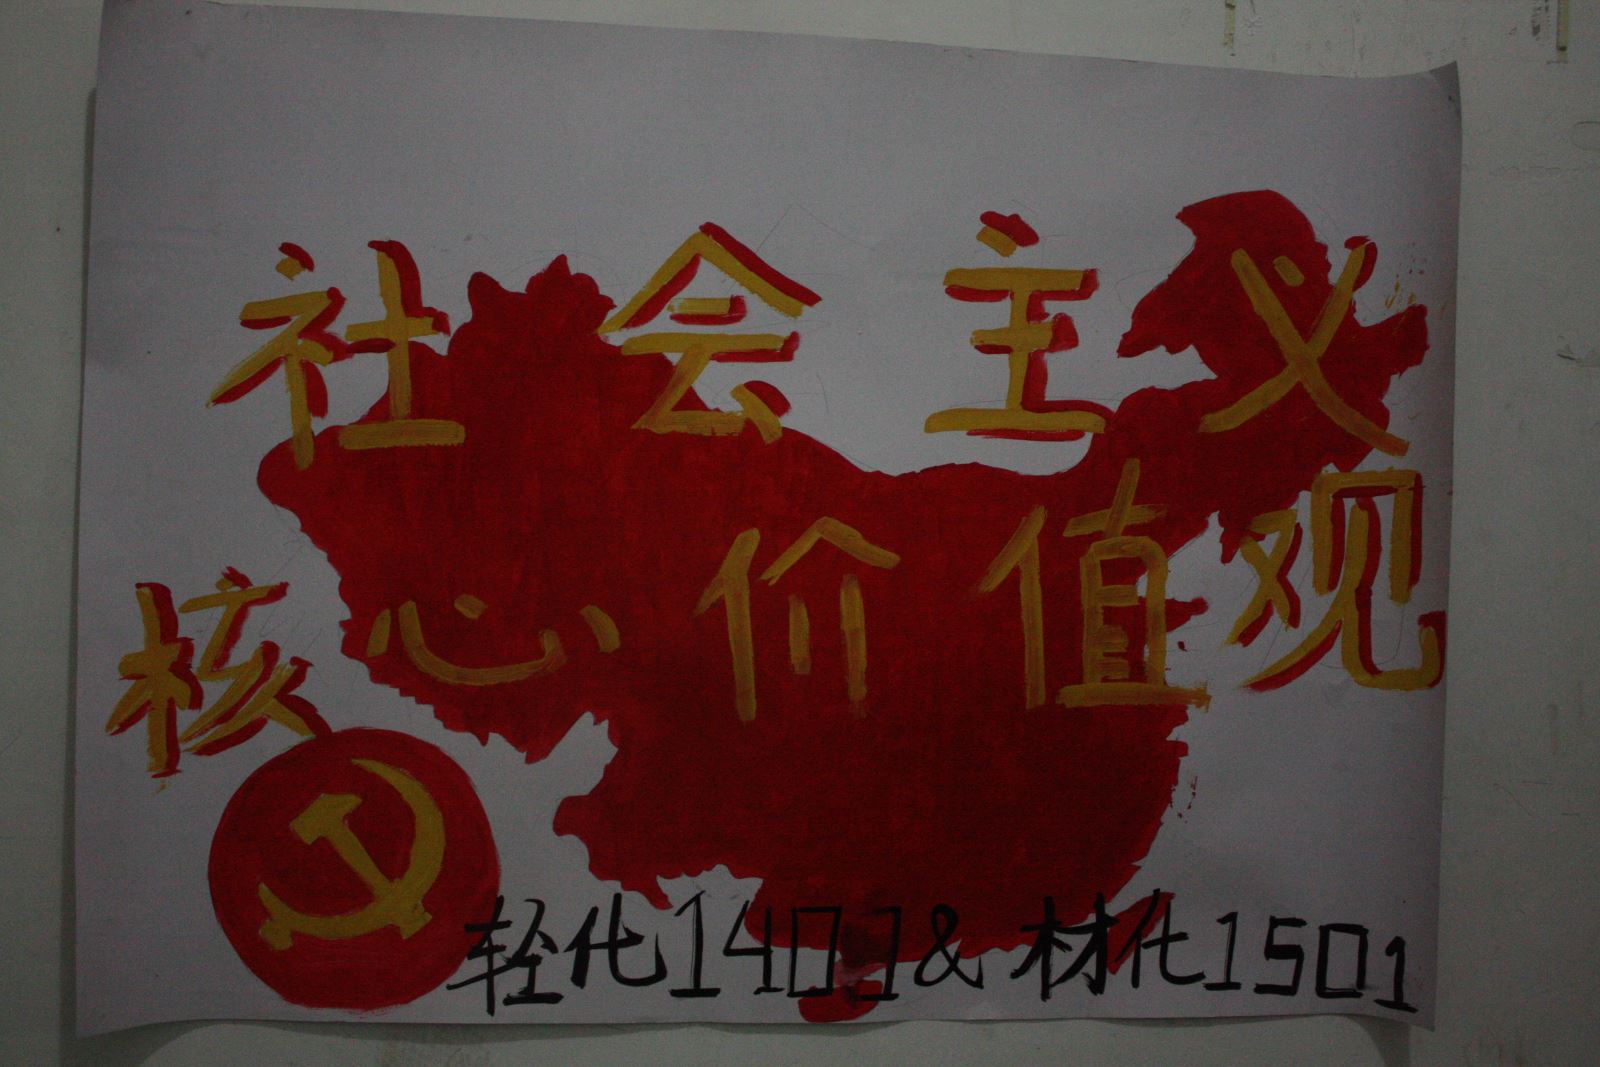 社会主义
核心价值观
轻化1401&材化1501